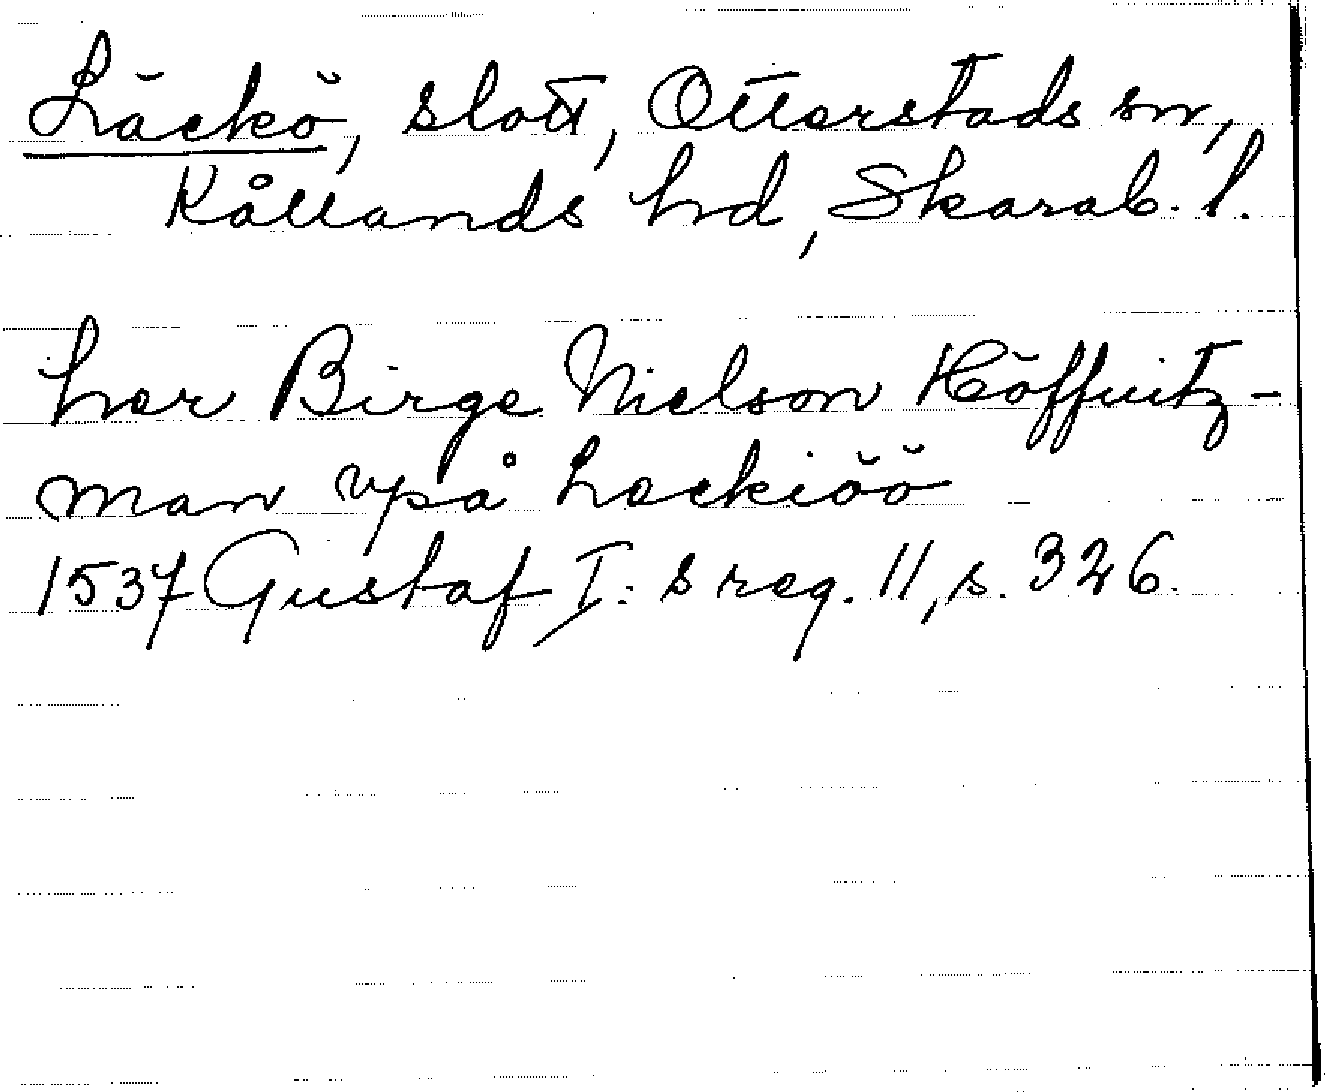 Läckö, slott, Otterstads sn,
Kållands hd, Skarab. l.
her Birge Nielson Höffuitz-
man vpå Leckiöö
1537 Gustaf I:s reg. 11, s. 326.